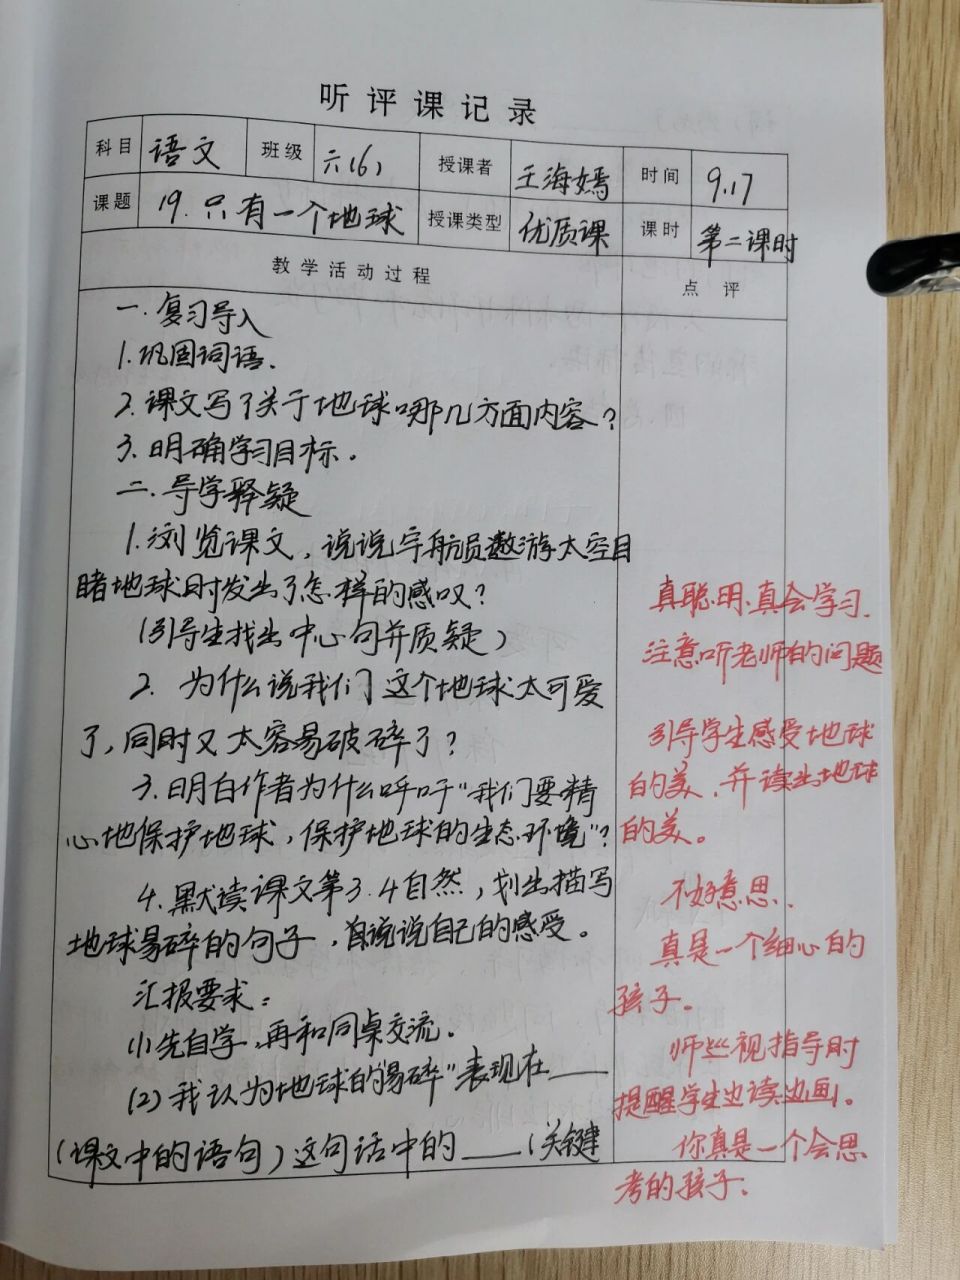 听评课记录
科目 语文 班级 六(6) 授课者 王海嫣 时间 9.17
课题 19.只有一个地球 授课类型 优质课 课时 第二课时
教学活动过程 点评
一.复习导入
1.巩固词语.
2.课文写了关于地球哪几方面内容?
3.明确学习目标.
二.导学释疑
1.浏览课文,说说宇航员遨游太空目
睹地球时发出了怎样的感叹?
(引导生找出中心句并质疑)
2.为什么说我们这个地球太可爱
了,同时又太容易破碎了?
3.明白作者为什么呼吁"我们要精
心地保护地球,保护地球的生态环境"?
4.默读课文第3.4自然,划出描写
地球易碎的句子,自说说自己的感受。
汇报要求:
(1)先自学,再和同桌交流.
(2)我认为地球的"易碎"表现在____
(课文中的语句)这句话中的____(关键
真聪明.真会学习.
注意听老师的问题
引导学生感受地球
的美.并读出地球
的美。
不好意思.
真是一个细心的
孩子.
师巡视指导时
提醒学生边读边画。
你真是一个会思
考的孩子.